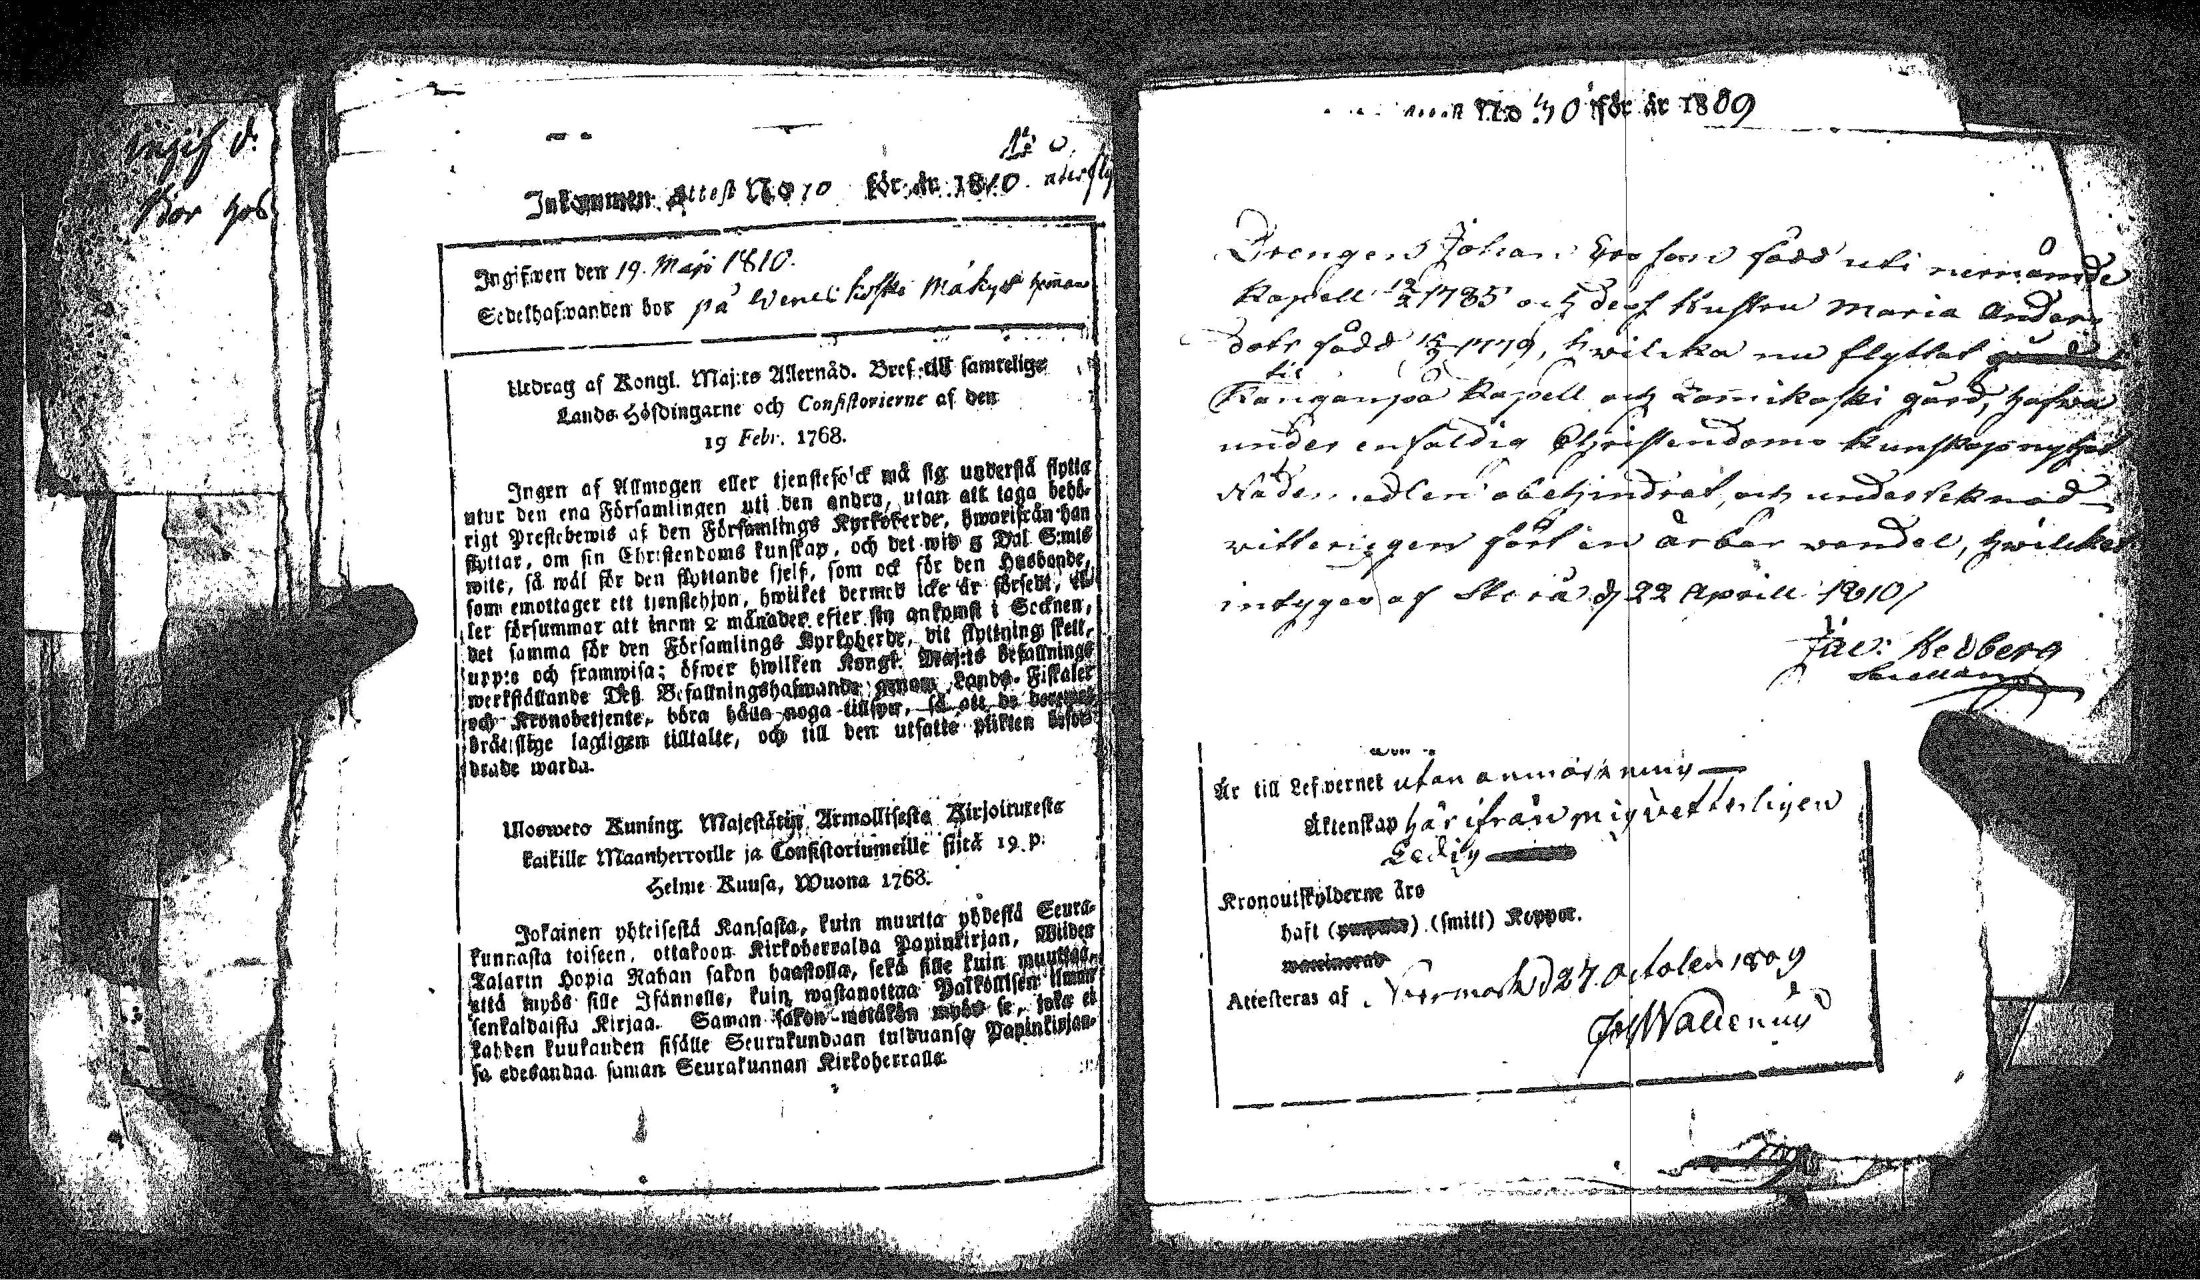 ingif d.
Bor hos
Inkommen Attest No 10 för år 1810.
Ingifwen den 19. Maji 1810.
Sedelhafwanden bor på
Utdrag af Kongl. Maj:ts Allernåd. Bref till samtelige
Lands-Höfdingarne och Consistorierne af den
19 Febr. 1768.
Ingen af Allmogen eller tjenstefolck må sig understå flytta
utur den ena Församlingen uti den andra, utan att taga behö-
rigt Prestebewis af den Församlings Kyrkoherde, hwarifrån han
flyttar, om sin Christendoms kunskap, och det wid 5 Dal. S:mts
wite, så wäl för den flyttande sjelf, som ock för den Husbonde,
som emottager ett tjenstehjon, hwilket dermed icke är försedt, el-
ler försummar att inom 2 månader efter sin ankomst i Socknen,
det samma för den Församlings Kyrkoherde, dit flyttning skett,
upp:e och framwisa; öfwer hwilken Kongl. Maj:ts befallnings
werkställande Deß Befallningshafwande genom Lands-Fiskaler
och Kronobetjente, böra hålla noga tillsyn, så att de
brätslige lagligen tilltalte, och till den utsatte plikten befor-
drade warda.
Ulosweto Kuning. Majestätin Armollisesta Kirjoituxesta
kaikille Maanherroille ja Consistoriumeille siitä 19 p:
Helme Kuusa, Wuona 1768.
Jokainen yhteisestä Kansasta, kuin muutta yhdestä Seura-
kunnasta toiseen, ottakoon Kirkoherralda Papinkirjan, Wiiden
Talarin Hopia Rahan sakon haastolla, sekä sille kuin muuttaa,
että myös sille Isännelle, kuin wastanottaa Palkollisen ilman
senkaldaista Kirjaa. Saman sakon wetäkön myös se, joka ei
kahden kuukauden sisälle Seurakundaan tulduansa Papinkirjan-
sa edesandaa saman Seurakunnan Kirkoherralle.
No 40 för år 1809
Drengen Johan Ersson född uti nernämde
Kapell 12/2 1785 och deß Hustru Maria Anders
dotr född 1779, hwilcka nu flyttat
till
Kanganpä Kapell och gård, hafwa
under enfaldig Christendoms kunskap nytjat
Nådemedlen obehindrat, och undertecknad
witterligen fört en ärbar wandel, hwilcket
intygas af Storå d 22 Aprill 1810/
Jac: Hedberg
Sacellan
Är till Lefwernet utan anmärkning
Äktenskap härifrån mig wetterligen
Ledig
Kronoutskylderne äro
haft (smitt) Koppor.
Attesteras af Normark d 27 October 1809
Joh Wallenius